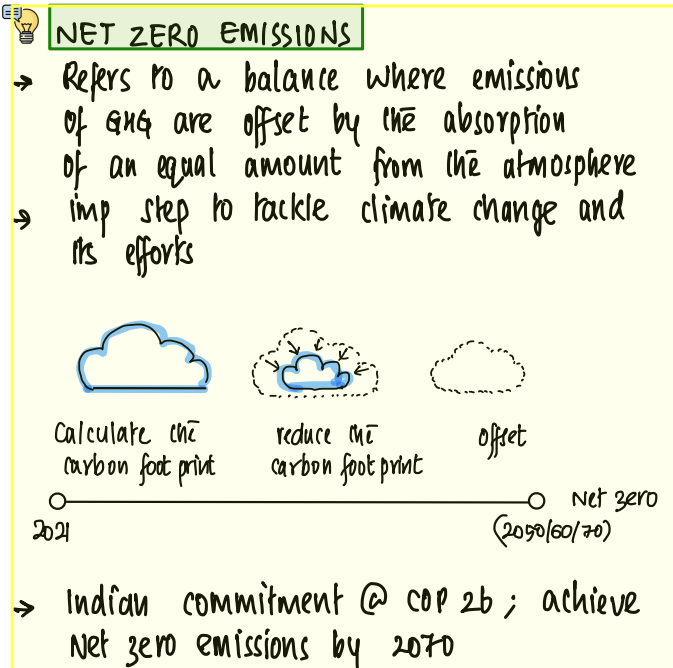 NET ZERO EMISSIONS
→ Refers to a balance where emissions
of GHG are offset by the absorption
of an equal amount from the atmosphere
→ imp step to tackle climate change and
its efforts
Calculate the
carbon foot print
reduce the
carbon foot print
offset
Net zero
2021
(2050/60/70)
→ Indian commitment @ COP 26 ; achieve
Net zero emissions by 2070